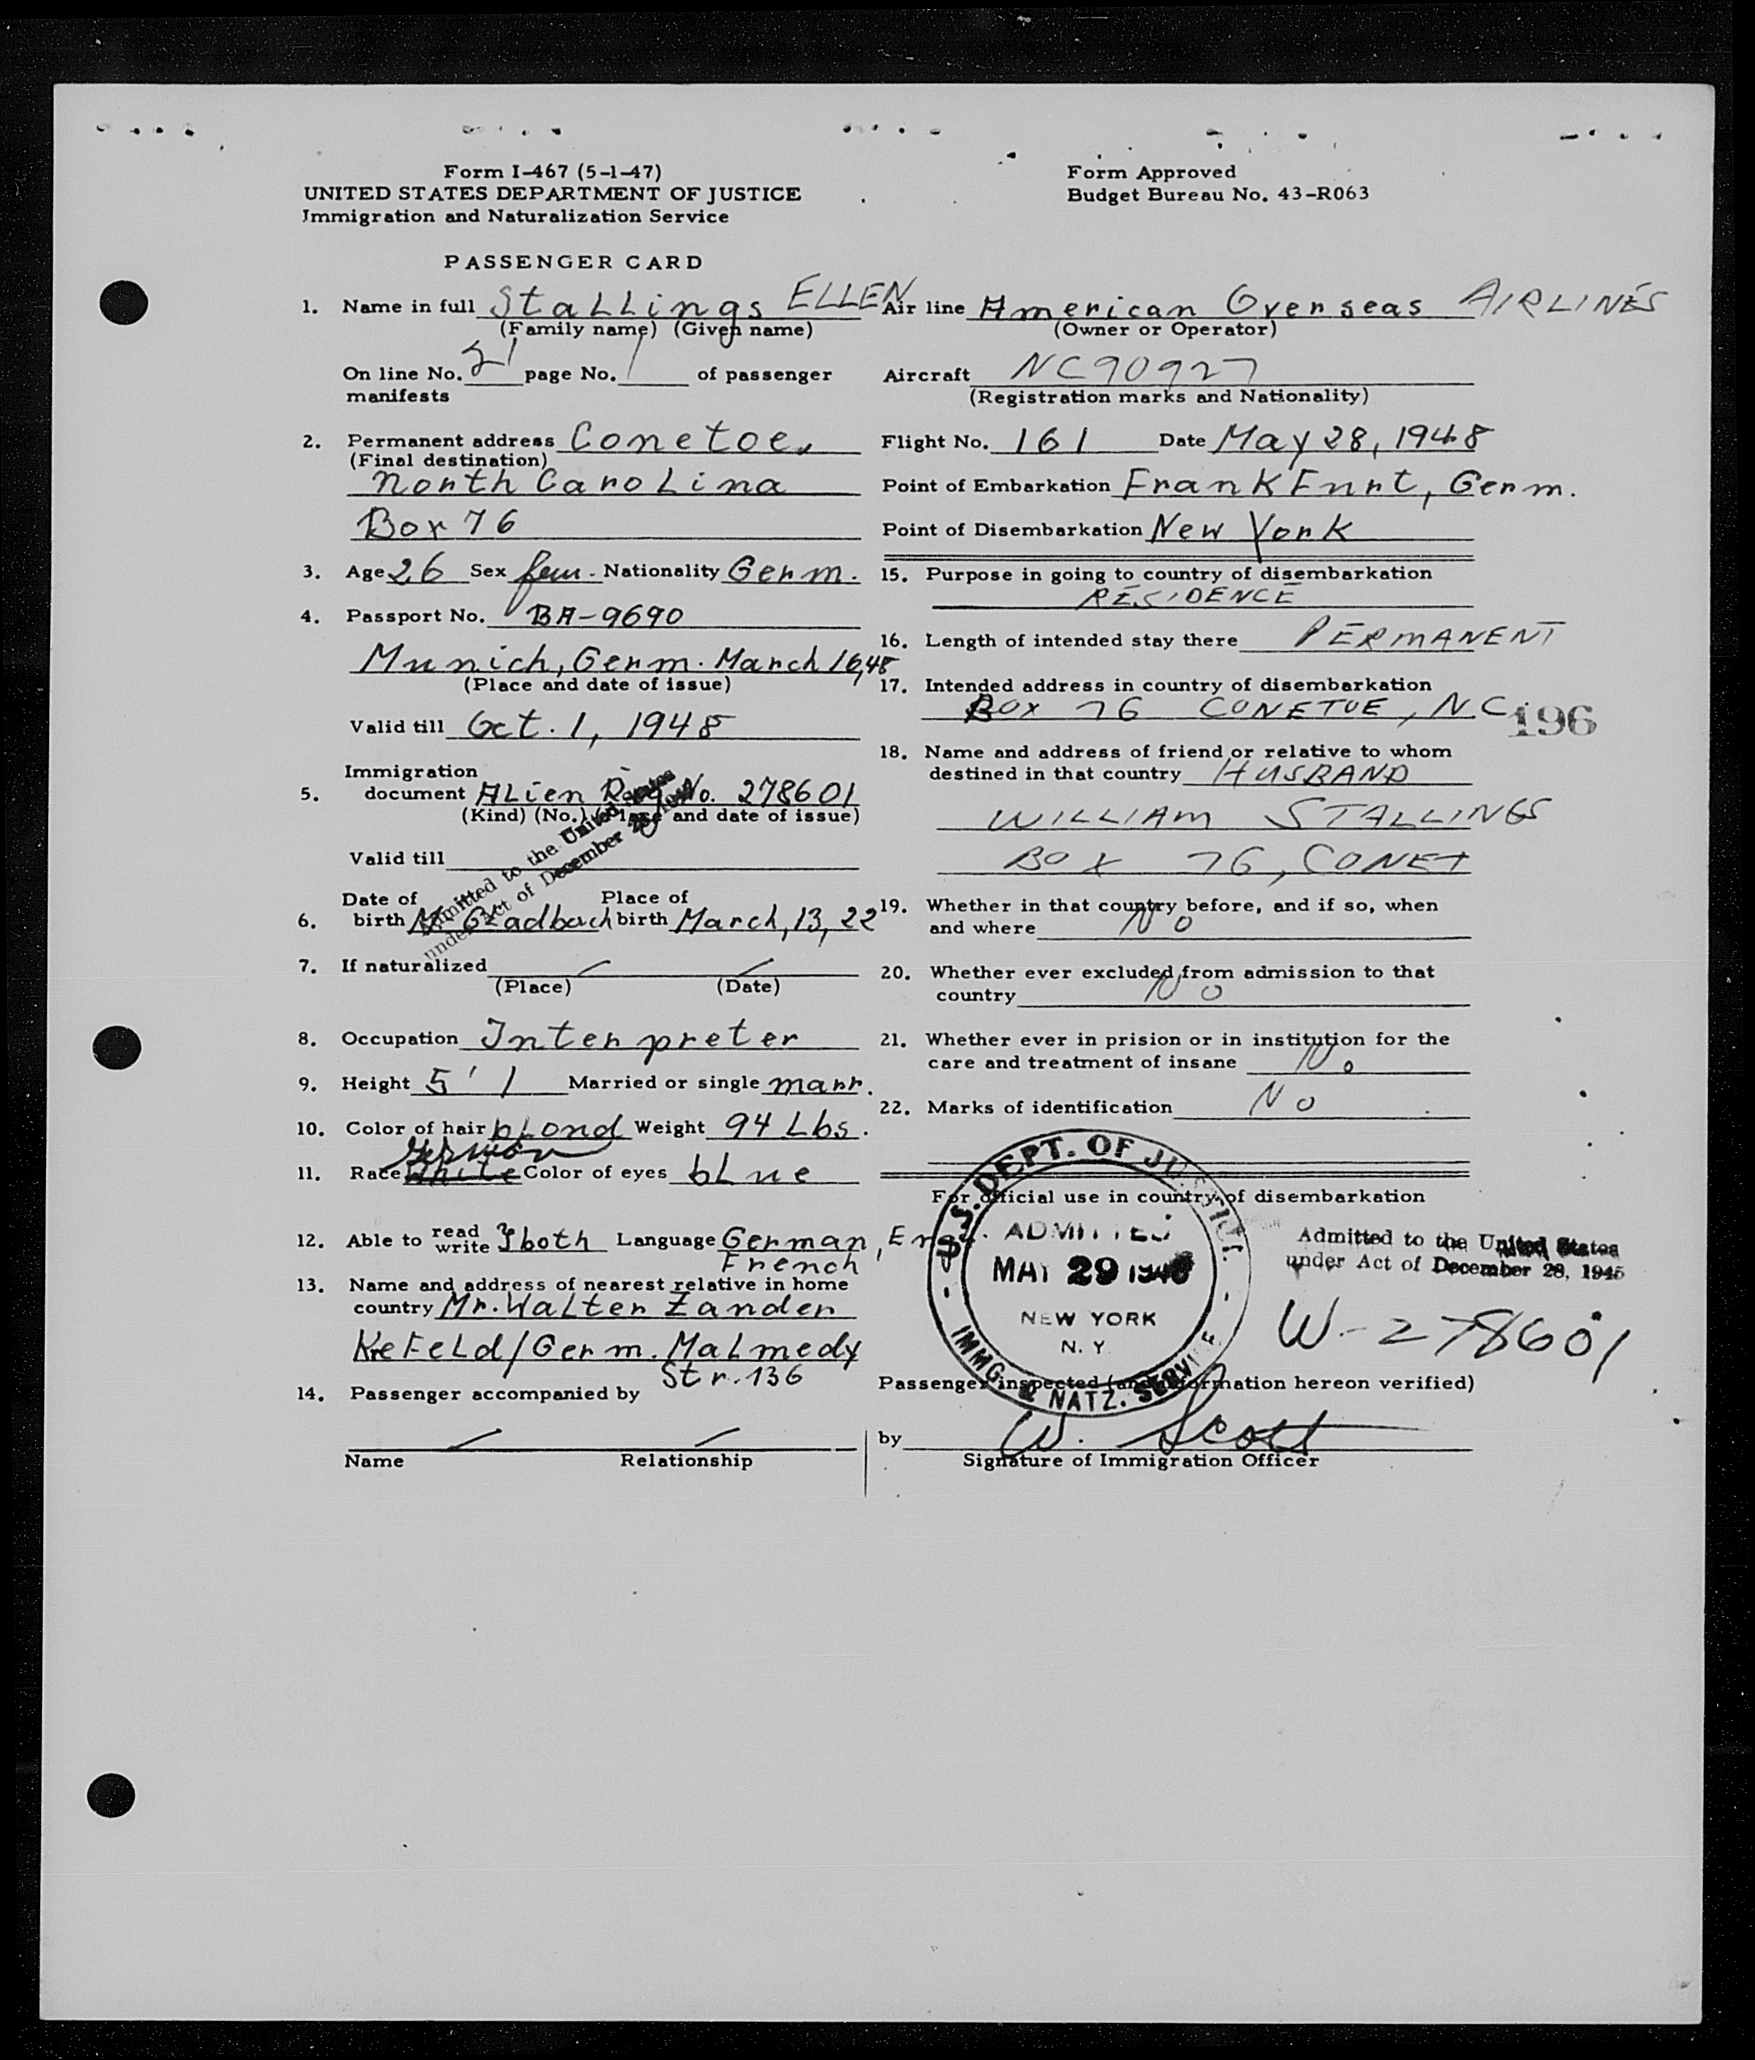 Form I-467 (5-1-47)
UNITED STATES DEPARTMENT OF JUSTICE
Immigration and Naturalization Service
Form Approved
Budget Bureau No. 43-R063
PASSENGER CARD
1. Name in full Stallings ELLEN
(Family name) (Given name)
On line No. 21 page No. 1 of passenger
manifests
2. Permanent address Conetoe,
(Final destination)
North Carolina
Box 76
3. Age 26 Sex fem. Nationality Germ.
4. Passport No. BA-9690
Munich, Germ. March 16, 48
(Place and date of issue)
Valid till Oct. 1, 1948
Immigration
5. document Alien Reg. No. 278601
(Kind) (No.) (Place and date of issue)
Admitted to the United States
under Act of December 28, 1945
Valid till
Date of Place of
6. birth M. Gladbach birth March, 13, 22
7. If naturalized / /
(Place) (Date)
8. Occupation Interpreter
9. Height 5' 1 Married or single marr.
10. Color of hair blond Weight 94 Lbs.
German
11. Race White Color of eyes blue
12. Able to read write } both Language German, Engl.
French
13. Name and address of nearest relative in home
country Mr. Walter Zander
Krefeld/Germ. Malmedy
Str. 136
14. Passenger accompanied by
/ /
Name Relationship
Air line American Overseas AIRLINES
(Owner or Operator)
Aircraft NC90927
(Registration marks and Nationality)
Flight No. 161 Date May 28, 1948
Point of Embarkation Frankfurt, Germ.
Point of Disembarkation New York
15. Purpose in going to country of disembarkation
RESIDENCE
16. Length of intended stay there PERMANENT
17. Intended address in country of disembarkation
BOX 76 CONETOE, N.C.
196
18. Name and address of friend or relative to whom
destined in that country HUSBAND
WILLIAM STALLINGS
BOX 76, CONET
19. Whether in that country before, and if so, when
and where No
20. Whether ever excluded from admission to that
country No
21. Whether ever in prision or in institution for the
care and treatment of insane No
22. Marks of identification No
For official use in country of disembarkation
U.S. DEPT. OF JUSTICE
ADMITTED
MAY 29 1948
NEW YORK
N. Y.
IMMG. & NATZ. SERVICE
Admitted to the United States
under Act of December 28, 1945
W-278601
Passenger inspected (and information hereon verified)
by W. Scott
Signature of Immigration Officer